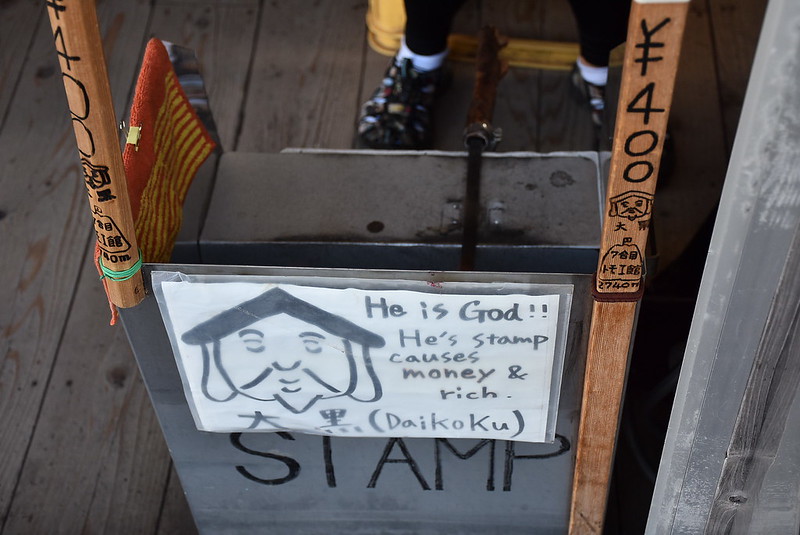 ¥400
黒
合目
館
40m
¥400
大 黒
巴
7合目
トモエ館
2740m
He is God!!
He's stamp
causes
money &
rich.
大黒(Daikoku)
STAMP